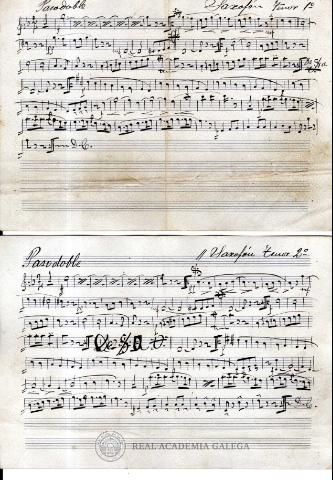 Pasodoble Saxofón Tenor 1º
D.C.
Pasodoble Saxofón Tenor 2º
D.C.
REAL ACADEMIA GALEGA